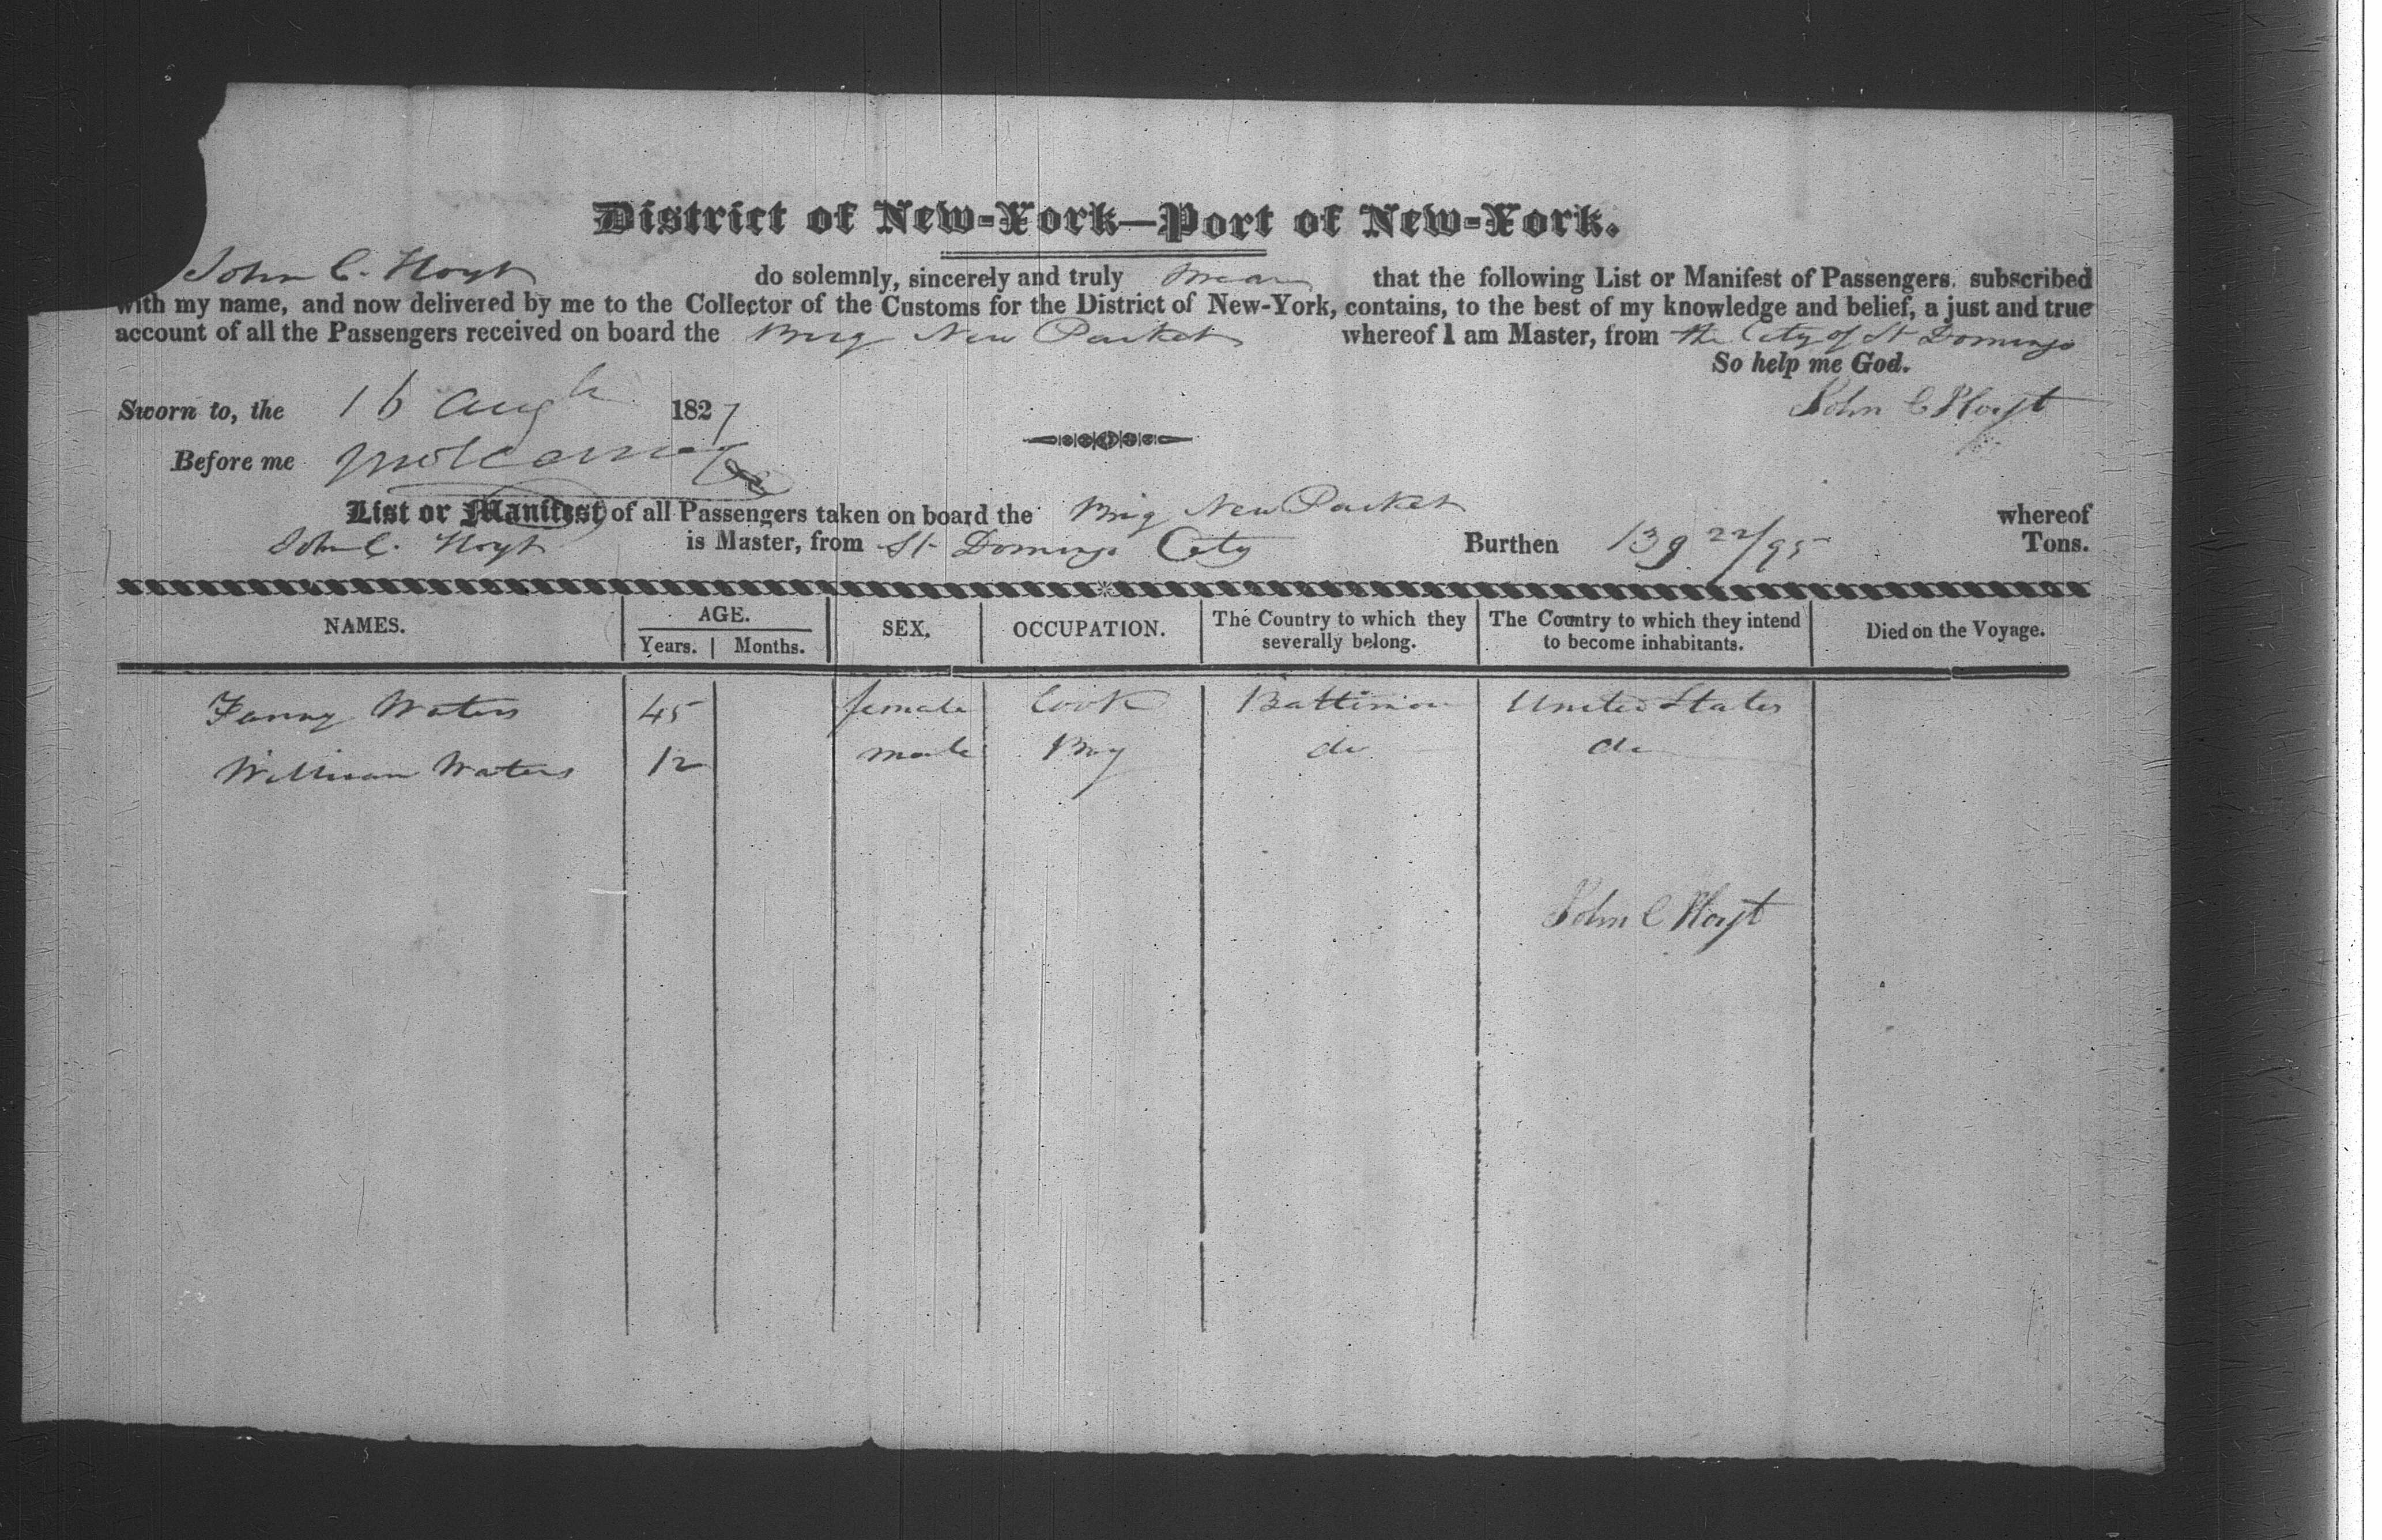 District of New-York—Port of New-York.
John C. Hoyt do solemnly, sincerely and truly swear that the following List or Manifest of Passengers, subscribed
with my name, and now delivered by me to the Collector of the Customs for the District of New-York, contains, to the best of my knowledge and belief, a just and true
account of all the Passengers received on board the Brig New Packet whereof I am Master, from the City of St Domingo
So help me God.
Sworn to, the 16 Augt 1827 John C Hoyt
Before me
List or Manifest of all Passengers taken on board the Brig New Packet whereof
John C. Hoyt is Master, from St Domingo City Burthen 139 22/95 Tons.
NAMES. AGE. SEX. OCCUPATION. The Country to which they severally belong. The Country to which they intend to become inhabitants. Died on the Voyage.
Years. Months.
Fanny Waters 45 female Cook Baltimore United States
William Waters 12 male Boy do do
John C Hoyt